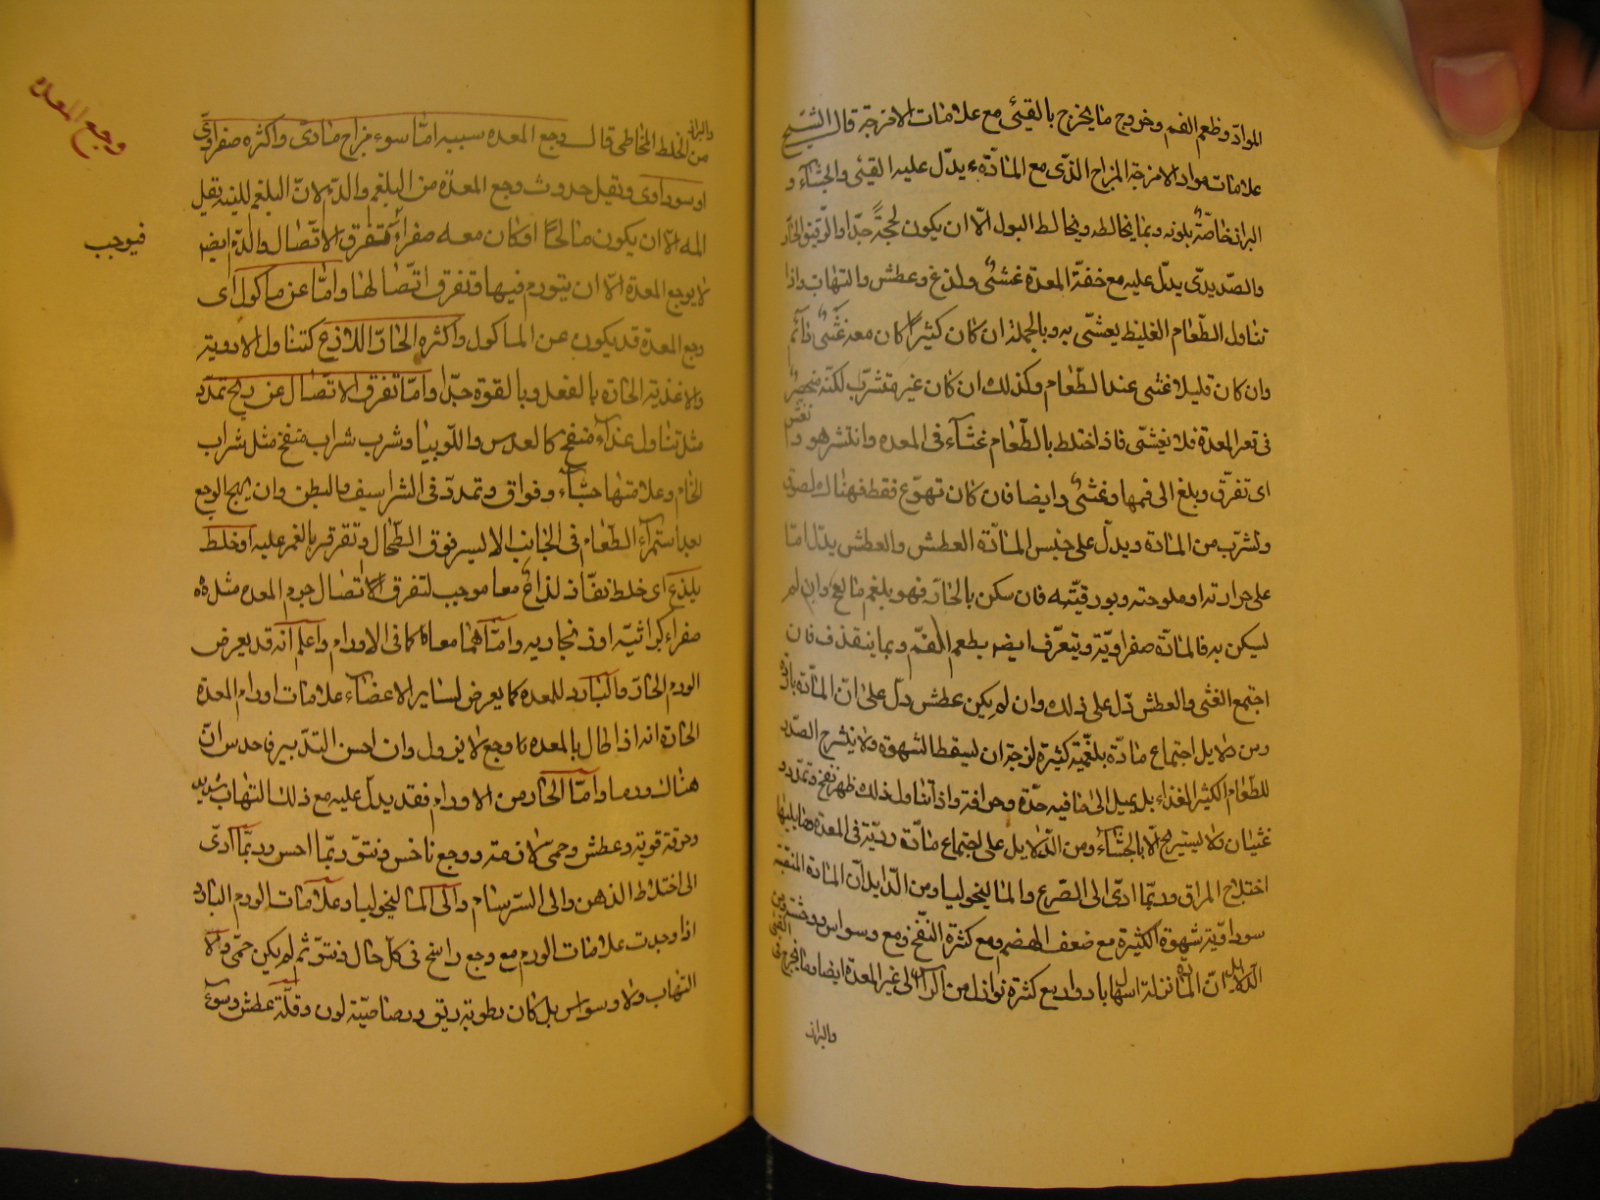 المواد وطعم الفم وخروج ما يخرج بالقيئ مع علامات الامزجة قال الشيخ
علامات مواد الامزجة المزاج الذى مع المادة يدل عليه القيئ والجشاء و
البراز خاصة بلونه وبما يخالطه ويخالط البول الا ان يكون لحجة جدا والرقيق الحار
والصديدى يدل عليه مع خفة المعدة غشى ولذع وعطش والتهاب واذا
تناول الطعام الغليظ يغشى به وبالجملة ان كان كثيرا كان معه غشى دائم
وان كان قليلا غشى عند الطعام وكذلك ان كان غير متشرب لكنه منحصر
فى قعر المعدة فلا يغشى فاذا اختلط بالطعام غشاء فى المعده وانتشر هو
اى تفرق وبلغ الى فمها وغشى وايضا فان كان تهوع فقط فهناك لصوق
وتشرب من المادة ويدل على جنس المادة العطش والعطش يدل اما
على حرارته او ملوحته وبورقيته فان سكن بالحار فهو بلغم مالح وان لم
ليكن به فالمادة صفراوية ويتعرف ايضا بطعم الفم وبما ينقذف فان
اجتمع الغثى والعطش دل على ذلك وان لم يكن عطش دل على ان المادة باردة
ومن دلايل اجتماع مادة بلغمية كثيرة لزجة ان ليسقط الشهوة ولا ينشرح الصدر
للطعام الكثير الغذاء بل يميل الى ما فيه حدة وحرافة واذا تناول ذلك ظهر نفخ وتمدد و
غثيان ولا يستريح الا بالجشاء ومن الدلايل على اجتماع مادة ردية فى المعدة وما يليها
اختلاج المراق وربما ادى الى الصرع والماليخوليا ومن الدلايل ان المادة المنقبة
سوداوية شهوة الكثيرة مع ضعف الهضم ومع كثرة النفخ ومع وسواس ووحشة ومن
الدلايل ان المادة نزلة اسهال بادوار مع كثرة نوازل من الراس الى غير المعدة ايضا وما يخرج فى القيئ
والبراز
والبراز
من الخلط المخاطى قال وجع المعده سببه اما سوء مزاج مادى واكثره صفراوى
او سوداوى ويقل حدوث وجع المعدة من البلغم والدم لان البلغم للينه يقل
المه الا ان يكون مالحا او كان معه صفراء فتفرق الاتصال والدم ايضا
لا يوجع المعدة الا ان يتورم فيها وتفرق اتصالها واما عن ماكول اى
وجع المعدة قد يكون عن الماكول واكثره الحار اللاذع كتناول الادوية
والاغذية الحارة بالفعل وبالقوة جدا واما تفرق الاتصال عن ريح تمدد
مثل تناول غذاء منفخ كالعدس واللوبيا وشرب شراب منفخ مثل شراب
الخام وعلامتها جشاء وفواق وتمدد فى الشراسيف والبطن وان يهيج الوجع
بعد استمراء الطعام فى الجانب الايسر فوق الطحال وتقرقر بالغمز عليه او خلط
يلذع اى خلط نفاذ لذاع معا موجب لتفرق الاتصال جرم المعده مثل مرة
صفراء كراثية او زنجارية واما هما معا كما فى الاورام واعلم انه قد يعرض
الورم الحار والبارد للمعده كما يعرض لساير الاعضاء علامات اورام المعدة
الحارة انه اذا طال بالمعده وجع لا يزول وان احسن التدبير فاحدس ان
هناك ورما واما الحار من الاورام فقد يدل عليه مع ذلك التهاب شديد
وحرقة قوية وعطش وحمى لازمة ووجع ناخس ونتو ربما احس وربما ادى
الى اختلاط الذهن والى السرسام والى الماليخوليا وعلامات الورم البارد
اذا وجدت علامات الورم مع وجع راسخ فى كل حال ونتو ثم لم يكن حمى ولا
التهاب ولا وسواس بل كان رطوبة ريق ورصاصية لون وقلة عطش وسوء
وجع المعده
فيوجب